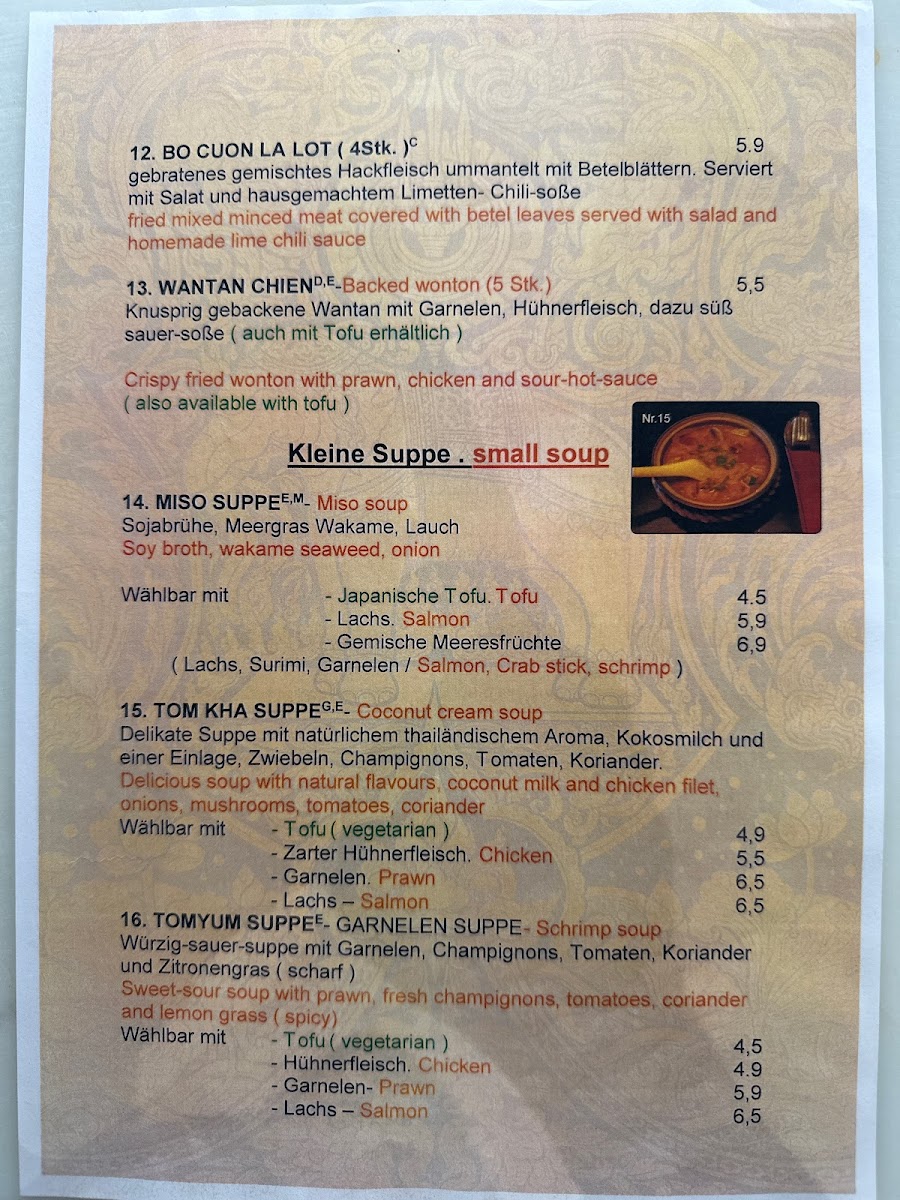 12. BO CUON LA LOT ( 4Stk. )C 5.9
gebratenes gemischtes Hackfleisch ummantelt mit Betelblättern. Serviert
mit Salat und hausgemachtem Limetten- Chili-soße
fried mixed minced meat covered with betel leaves served with salad and
homemade lime chili sauce
13. WANTAN CHIEND,E-Backed wonton (5 Stk.) 5,5
Knusprig gebackene Wantan mit Garnelen, Hühnerfleisch, dazu süß
sauer-soße ( auch mit Tofu erhältlich )
Crispy fried wonton with prawn, chicken and sour-hot-sauce
( also available with tofu )
Nr.15
Kleine Suppe . small soup
14. MISO SUPPEE,M- Miso soup
Sojabrühe, Meergras Wakame, Lauch
Soy broth, wakame seaweed, onion
Wählbar mit - Japanische Tofu. Tofu 4.5
- Lachs. Salmon 5,9
- Gemische Meeresfrüchte 6,9
( Lachs, Surimi, Garnelen / Salmon, Crab stick, schrimp )
15. TOM KHA SUPPEG,E- Coconut cream soup
Delikate Suppe mit natürlichem thailändischem Aroma, Kokosmilch und
einer Einlage, Zwiebeln, Champignons, Tomaten, Koriander.
Delicious soup with natural flavours, coconut milk and chicken filet,
onions, mushrooms, tomatoes, coriander
Wählbar mit - Tofu ( vegetarian ) 4,9
- Zarter Hühnerfleisch. Chicken 5,5
- Garnelen. Prawn 6,5
- Lachs – Salmon 6,5
16. TOMYUM SUPPEE- GARNELEN SUPPE- Schrimp soup
Würzig-sauer-suppe mit Garnelen, Champignons, Tomaten, Koriander
und Zitronengras ( scharf )
Sweet-sour soup with prawn, fresh champignons, tomatoes, coriander
and lemon grass ( spicy)
Wählbar mit - Tofu ( vegetarian ) 4,5
- Hühnerfleisch. Chicken 4.9
- Garnelen- Prawn 5,9
- Lachs – Salmon 6,5